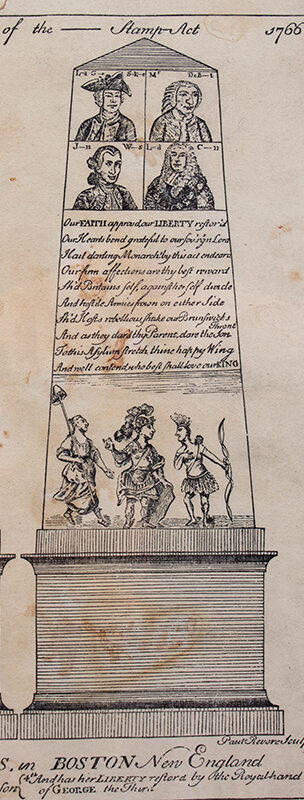 of the — Stamp-Act 1766
L—d G— S—k—e Mr DeB—t
J—n W—s L—d C—n
Our FAITH approv'd, our LIBERTY restor'd
Our Hearts bend grateful to our sov'r'gn Lord
Hail darling Monarch! by this act endear'd
Our firm affections are thy best reward
Sh'd Britains self, against her self divide
And hostile Armies frown on either Side
Sh'd Hosts rebellious, shake our Brunswick's Throne
And as they dar'd thy Parent, dare the Son
To this Asylum stretch thine happy Wing
And we'll contend, who best shall love our KING
Paul Revere Sculp
S, in BOSTON New England
And has her LIBERTY restor'd by the Royal hand
of GEORGE the Third